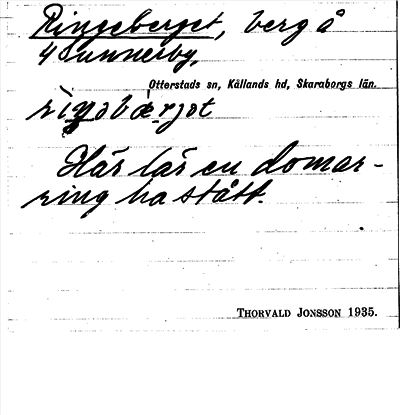 Ringeberget, berg å
4 Sunnersby,
Otterstads sn, Kållands hd, Skaraborgs län.
Här lär en domar-
ring ha stått.
THORVALD JONSSON 1935.